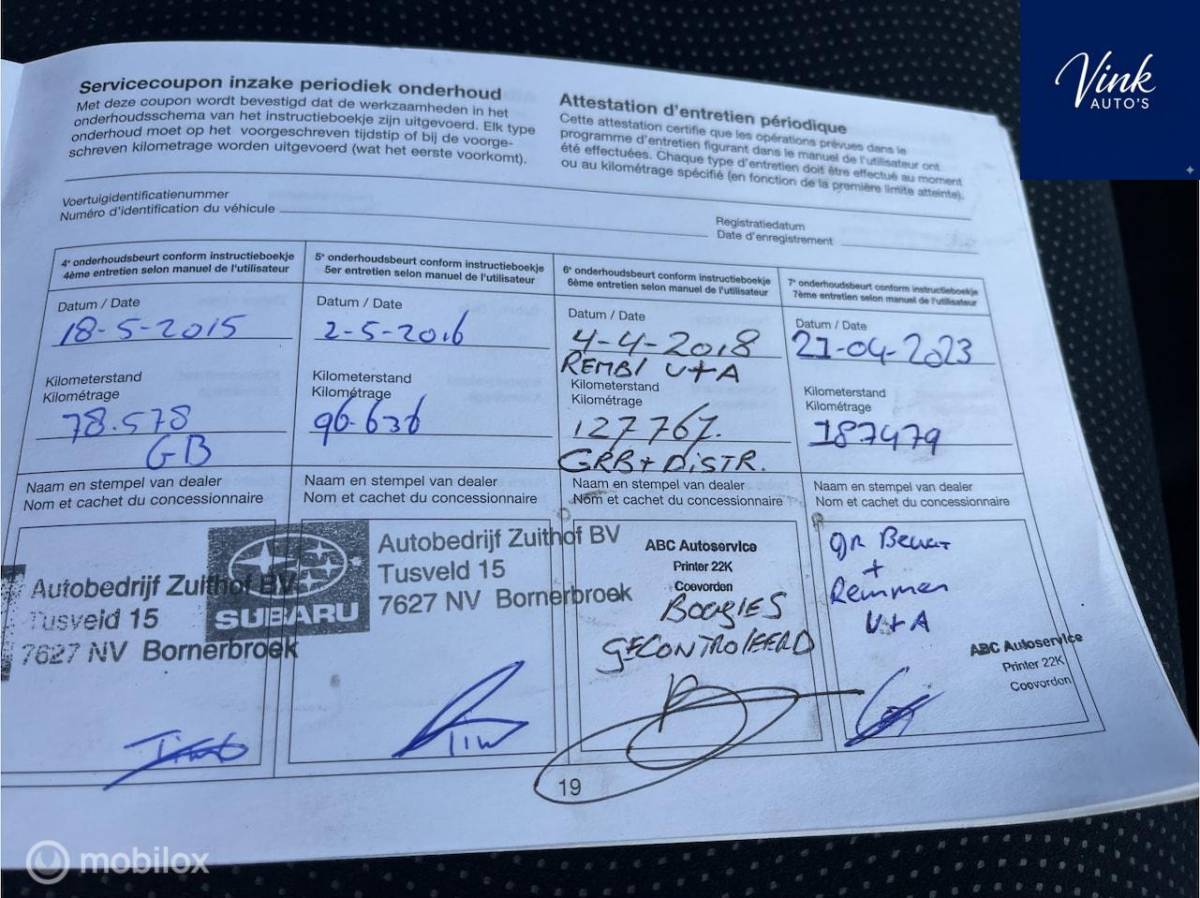 Vink
AUTO'S
Servicecoupon inzake periodiek onderhoud
Met deze coupon wordt bevestigd dat de werkzaamheden in het
onderhoudsschema van het instructieboekje zijn uitgevoerd. Elk type
onderhoud moet op het voorgeschreven tijdstip of bij de voorge-
schreven kilometrage worden uitgevoerd (wat het eerste voorkomt).
Attestation d'entretien périodique
Cette attestation certifie que les opérations prévues dans le
programme d'entretien figurant dans le manuel de l'utilisateur ont
été effectuées. Chaque type d'entretien doit être effectué au moment
ou au kilométrage spécifié (en fonction de la première limite atteinte).
Voertuigidentificatienummer
Numéro d'identification du véhicule
Registratiedatum
Date d'enregistrement
4e onderhoudsbeurt conform instructieboekje
4ème entretien selon manuel de l'utilisateur
Datum / Date
18-5-2015
Kilometerstand
Kilométrage
78.578
GB
Naam en stempel van dealer
Nom et cachet du concessionnaire
Autobedrijf Zuithof BV
Tusveld 15
7627 NV Bornerbroek
5e onderhoudsbeurt conform instructieboekje
5er entretien selon manuel de l'utilisateur
Datum / Date
2-5-2016
Kilometerstand
Kilométrage
96.636
Naam en stempel van dealer
Nom et cachet du concessionnaire
SUBARU
Autobedrijf Zuithof BV
Tusveld 15
7627 NV Bornerbroek
6e onderhoudsbeurt conform instructieboekje
6ème entretien selon manuel de l'utilisateur
Datum / Date
4-4-2018
REMBL V+A
Kilometerstand
Kilométrage
127767.
GRB+DISTR.
Naam en stempel van dealer
Nom et cachet du concessionnaire
ABC Autoservice
Printer 22K
Coevorden
BOUGIES
GECONTROLEERD
7e onderhoudsbeurt conform instructieboekje
7ème entretien selon manuel de l'utilisateur
Datum / Date
21-04-2023
Kilometerstand
Kilométrage
187479
Naam en stempel van dealer
Nom et cachet du concessionnaire
gr Beurt
+
Remmen
V+A
ABC Autoservice
Printer 22K
Coevorden
19
mobilox